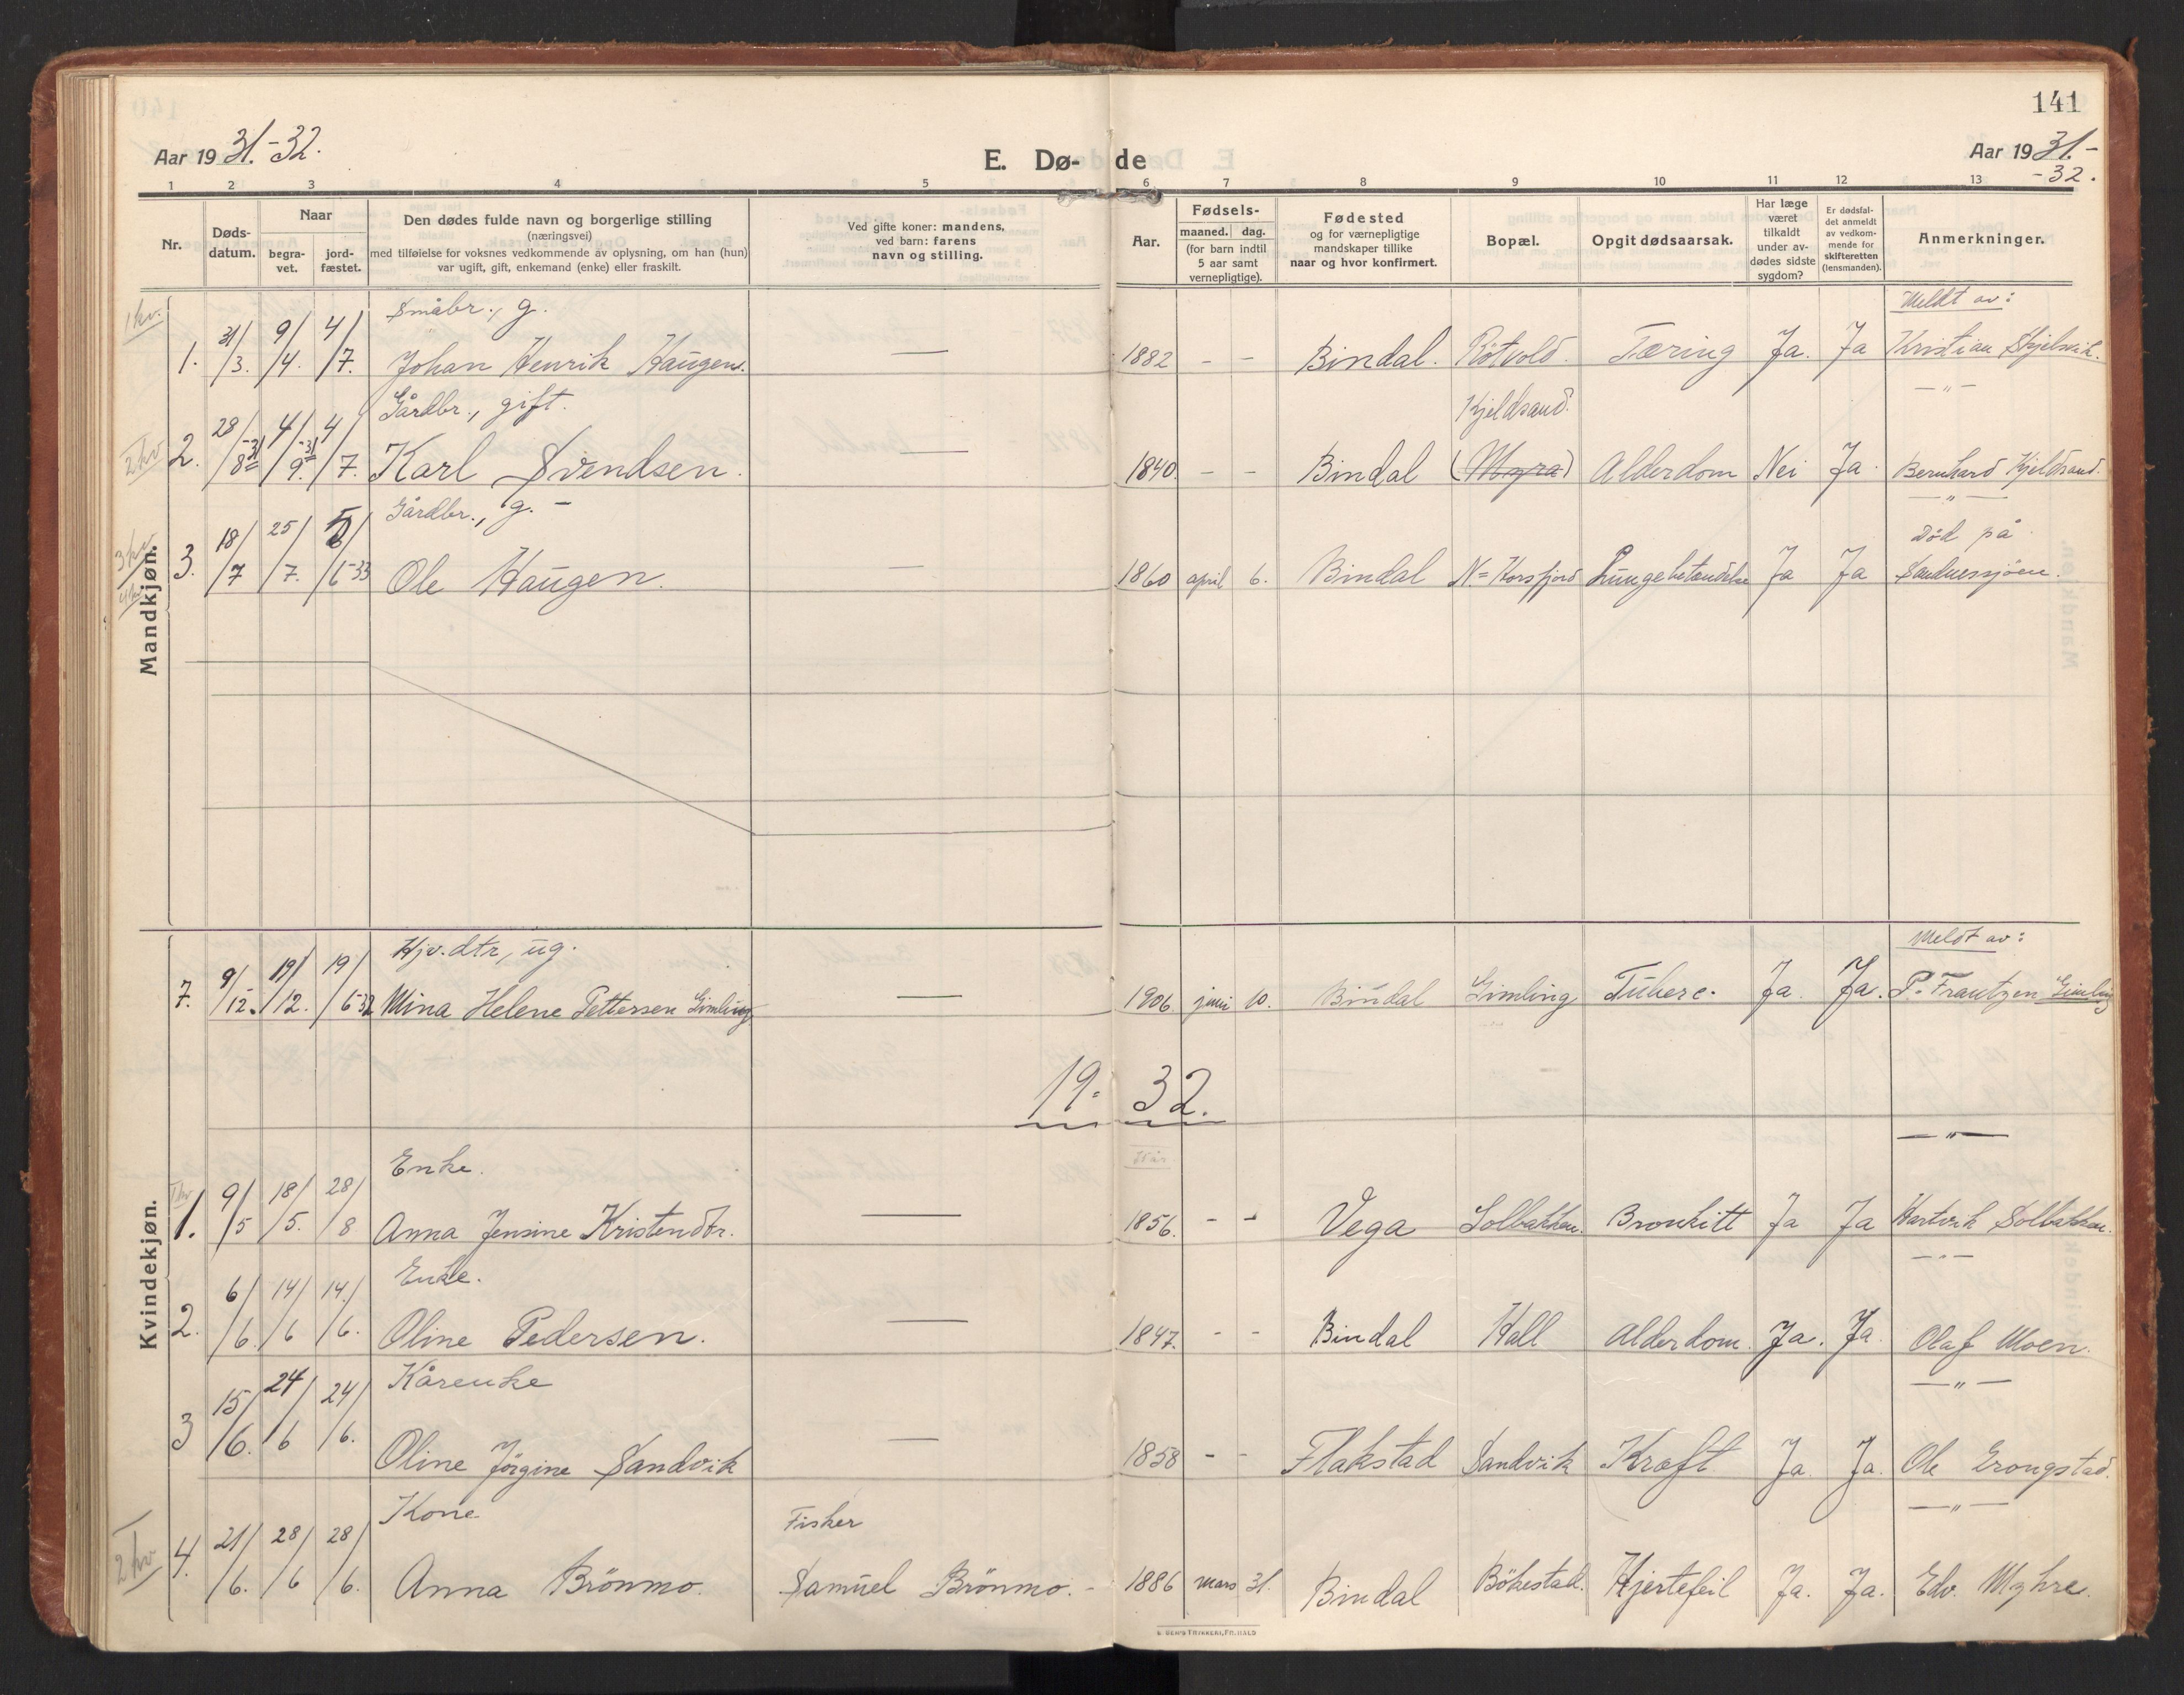 141
Aar 1931.-32.
E. Dø- de
Aar 1931.-
-32.
1 2 3 4 5 6 7 8 9 10 11 12 13
Nr.
Døds-
datum.
Naar
begra-
vet.
jord-
fæstet.
Den dødes fulde navn og borgerlige stilling
(næringsvei)
med tilføielse for voksnes vedkommende av oplysning, om han (hun)
var ugift, gift, enkemand (enke) eller fraskilt.
Ved gifte koner: mandens,
ved barn: farens
navn og stilling.
Aar.
Fødsels-
maaned. dag.
(for barn indtil
5 aar samt
vernepligtige).
Fødested
og for værnepligtige
mandskaper tillike
naar og hvor konfirmert.
Bopæl.
Opgit dødsaarsak.
Har læge
været
tilkaldt
under av-
dødes sidste
sygdom?
Er dødsfal-
det anmeldt
av vedkom-
mende for
skifteretten
(lensmanden).
Anmerkninger.
Mandkjøn.
1 kv.
Småbr., g. Meldt av:
1. 31/3. 9/4. 4/7. Johan Henrik Haugen. — 1882 - - Bindal. Tæring Ja. Ja Kristian
Gårdbr., gift. Kjeldsand. —"—
2 kv
2. 28/8-31 4/9.-31 4/7. Karl Svendsen. — 1840. - - Bindal (Myra) Alderdom Nei Ja. Bernhard Kjeldsand.
Gårdbr., g. - —"—
3 kv
Død på
3. 18/7 25/7. /6-33 Ole Haugen. — 1860 april 6. Bindal N.=Horsfjord Lungebetændelse Ja Ja Sandnessjøen.
Kvindekjøn.
Hjv.dtr, ug. Meldt av:
7. 9/12. 19/12. 19/6-32 Mina Helene Pettersen Gimling — 1906. juni 10. Bindal Gimling Tuberc. Ja. Ja. P. Frantzen Gimling
19= 32.
Enke. —"—
1 kv
1. 9/5 18/5. 28/8 Anna Jensine Kristendtr. — 1856. - - Vega Solbakken. Bronkitt Ja Ja Hartvik Solbakken.
Enke. —"—
2. 6/6. 14/6 14/6. Oline Pedersen. — 1847. - - Bindal Hall Alderdom. Ja. Ja. Olaf Moen.
Kårenke —"—
3 15/6. 24/6 24/6. Oline Jörgine Sandvik — 1858 - - Flakstad Sandvik Kræft. Ja. Ja. Ole
Kone Fisker —"—
2 kv
4. 21/6. 28/6 28/6. Anna Brönmo. Samuel Brönmo. - 1886 mars 31. Bindal Bökestad. Hjertefeil Ja. Ja. Edv. Myhre.